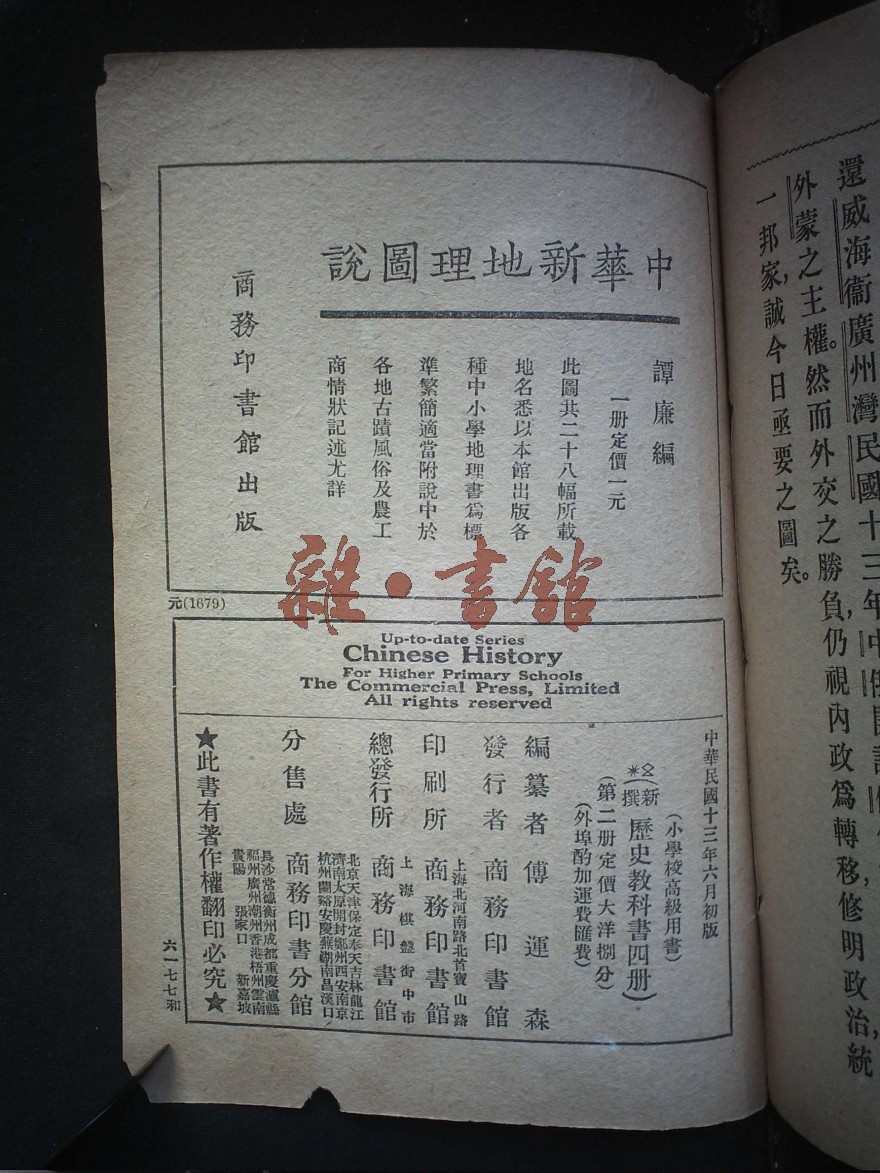 還威海衞廣州灣民國十三年中俄國
外蒙之主權。然而外交之勝負,仍視內政爲轉移,修明政治,統
一邦家,誠今日亟要之圖矣。
中華新地理圖說
譚廉編
一册定價一元
此圖共二十八幅所載
地名悉以本館出版各
種中小學地理書爲標
準繁簡適當附說中於
各地古蹟風俗及農工
商情狀記述尤詳
商務印書館出版
元(1679)
雜·書館
Up-to-date Series
Chinese History
For Higher Primary Schools
The Commercial Press, Limited
All rights reserved
中華民國十三年六月初版
(小學校高級用書)
(新撰歷史教科書四册)
(第二册定價大洋捌分)
(外埠酌加運費匯費)
編纂者 傅運森
發行者 商務印書館
上海北河南路北首寶山路
印刷所 商務印書館
上海棋盤街中市
總發行所 商務印書館
北京天津保定奉天吉林龍江
濟南太原開封鄭州西安南京
杭州蘭谿安慶蕪湖南昌漢口
分售處 商務印書分館
長沙常德衡州成都重慶瀘縣
福州廣州潮州香港梧州雲南
貴陽 張家口 新嘉坡
★此書有著作權翻印必究★
六一七七和